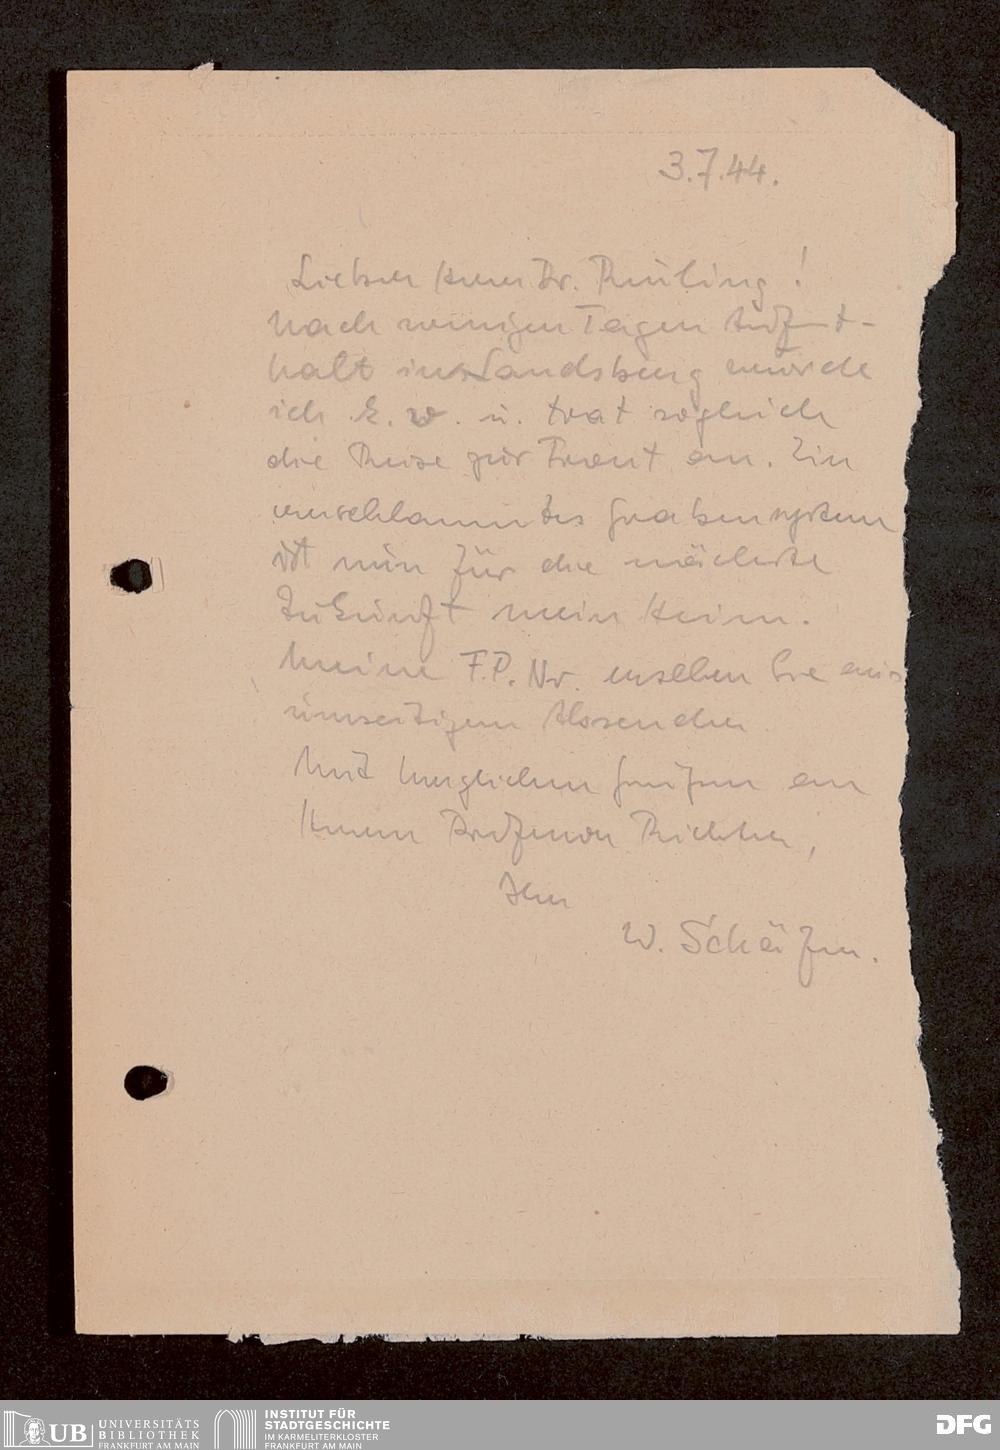 3.7.44.
Lieber Herr Dr. Reuling!
Nach wenigen Tagen Aufent-
halt in Landsberg wurde
ich k.v. u. trat sogleich
die Reise zur Front an. Ein
verschlammtes Grabensystem
ist nun für die nächste
Zukunft mein Heim.
Meine F.P.Nr. ersehen Sie aus
umseitigem Absender
Mit herzlichen Grüßen an
Herrn Professor Richter,
Ihr
W. Schäfer.
UB UNIVERSITÄTS
BIBLIOTHEK
FRANKFURT AM MAIN
INSTITUT FÜR
STADTGESCHICHTE
IM KARMELITERKLOSTER
FRANKFURT AM MAIN
DFG